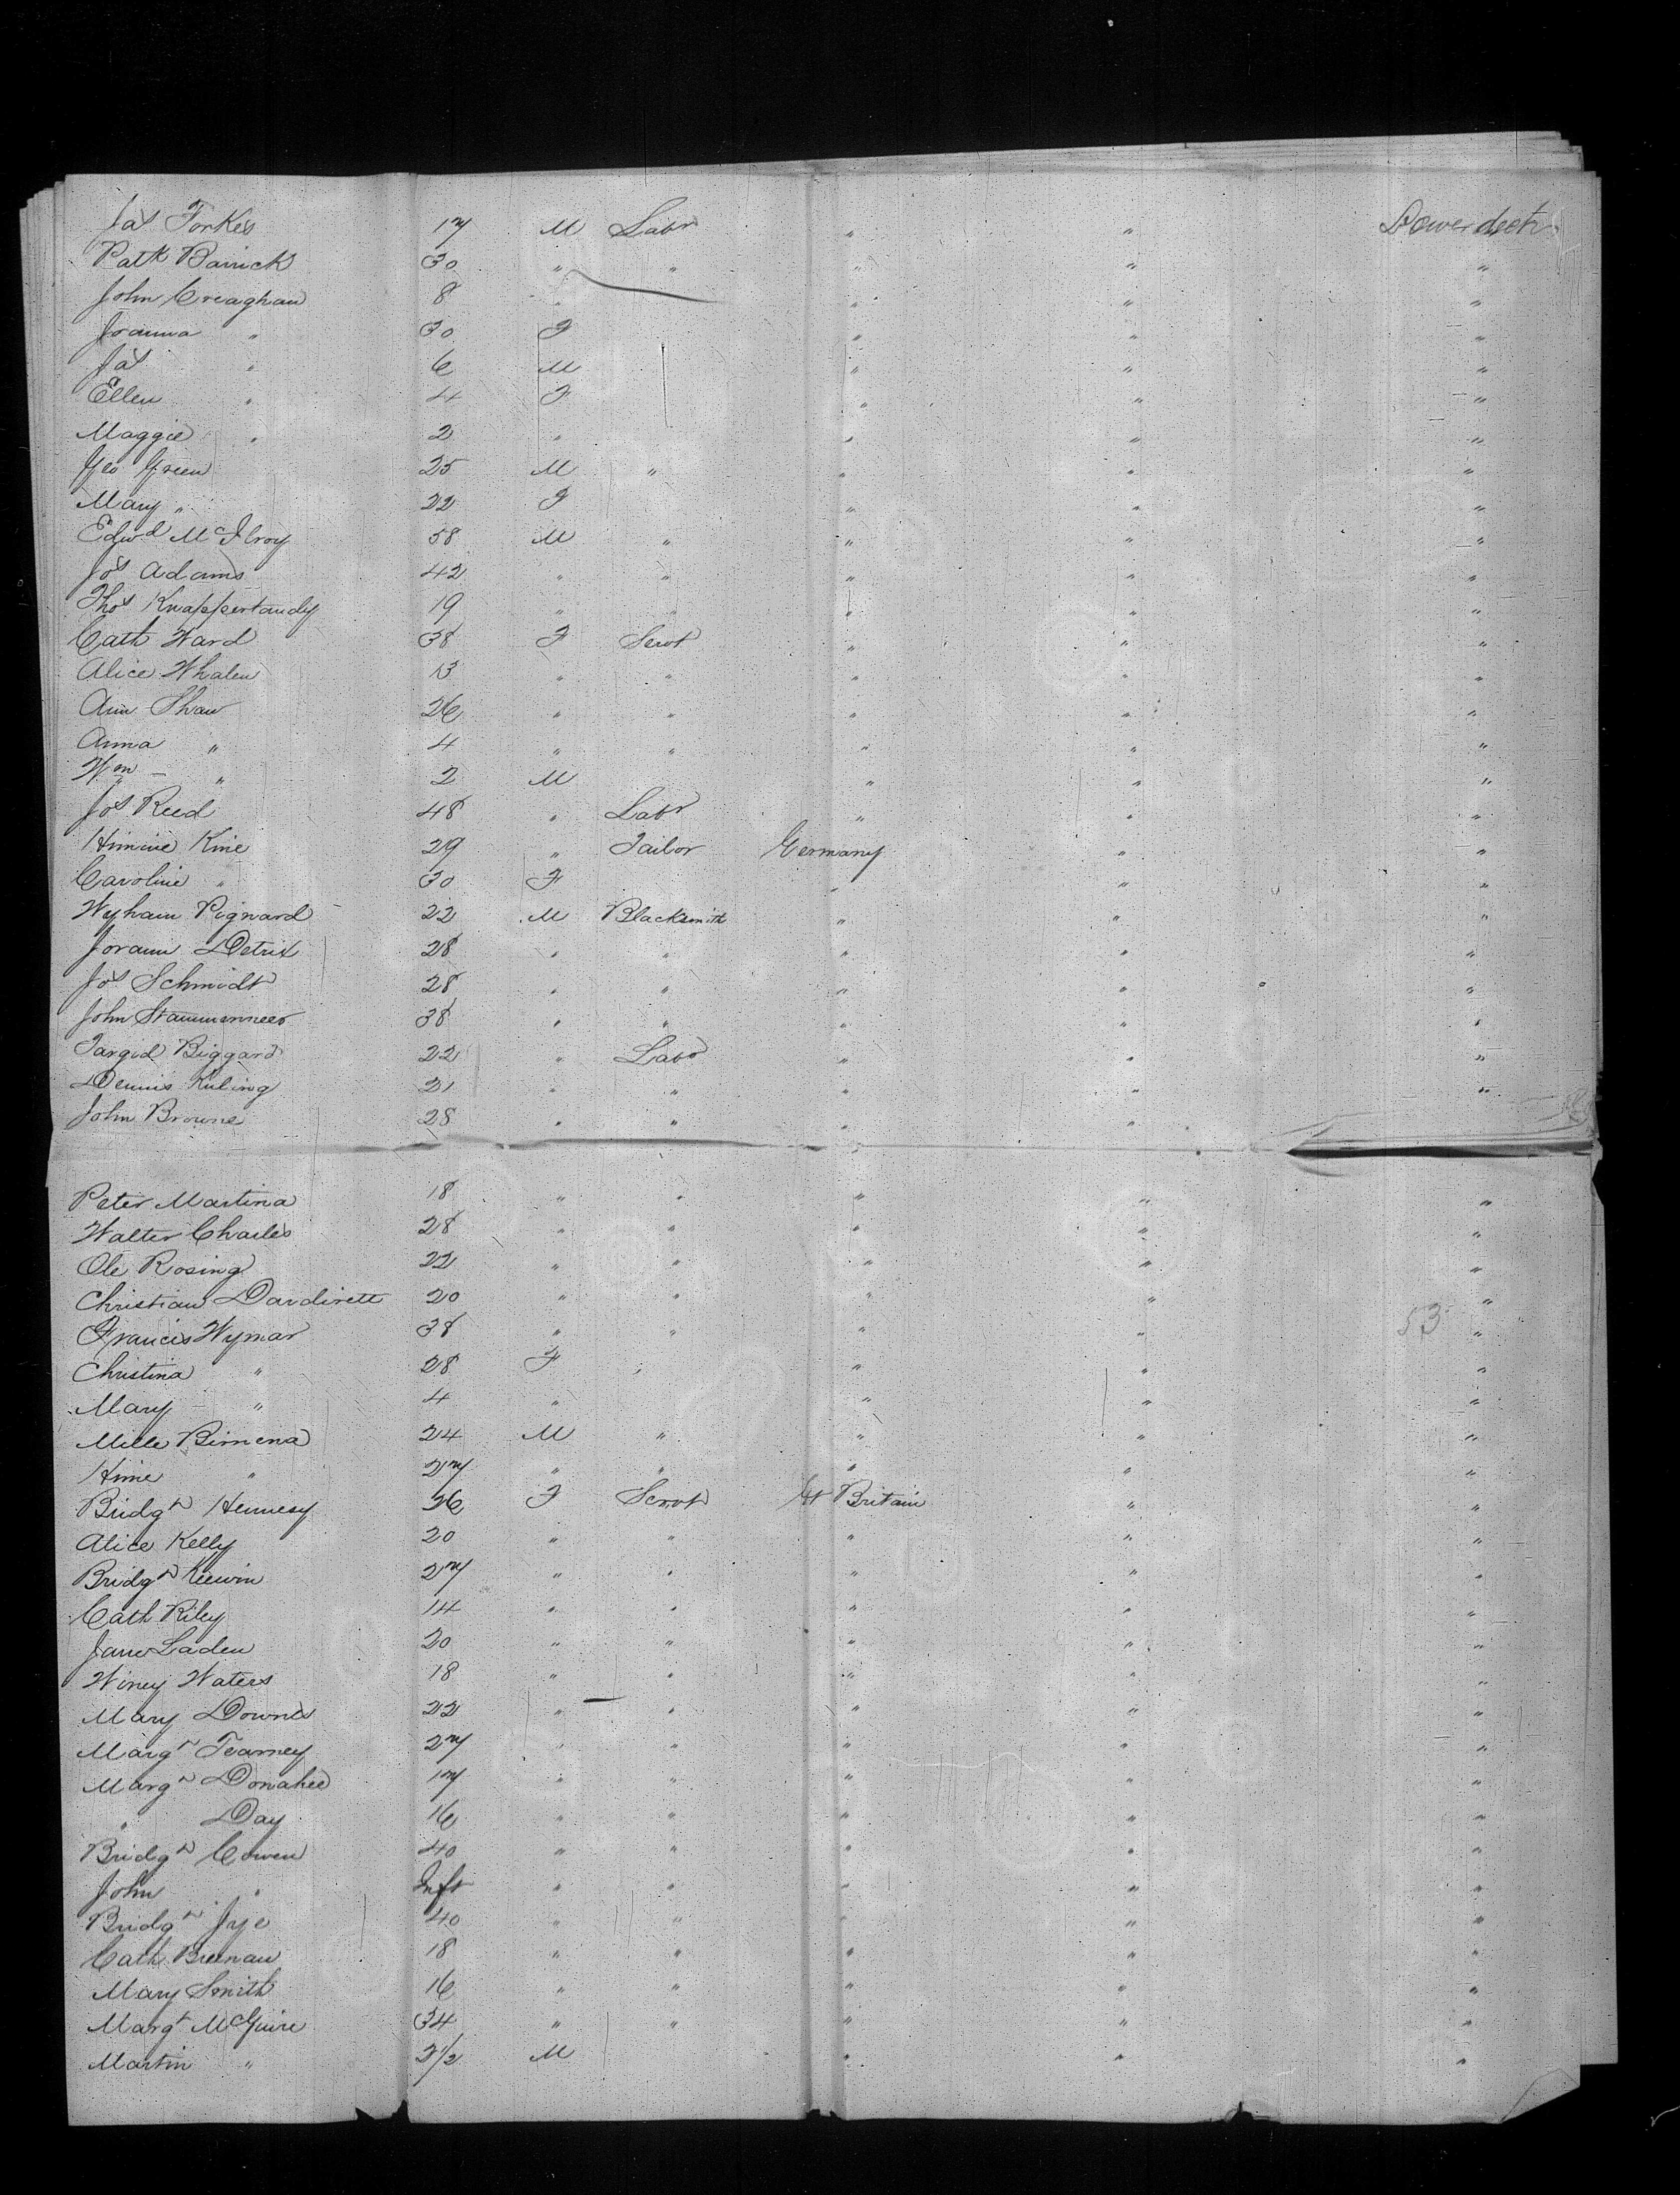 Jas Forkes 17 M Labr " " Lower deck
Patk Barrick 30 " " " " "
John Creaghan 8 " " " "
Joanna " 30 F " " "
Jas " 6 M " " "
Ellen " 4 F " " "
Maggie " 2 " " " "
Geo Green 25 M " " " "
Mary " 22 F " " "
Edwd McIlroy 58 M " " " "
Jos Adams 42 " " " " "
Thos Knappertandy 19 " " " " "
Cath Ward 38 F Servt " " "
Alice Whalen 13 " " " " "
Ann Shaw 26 " " " " "
Anna " 4 " " " " "
Wm " 2 M " " "
Jos Reed 48 " Labr " " "
Himine Kine 29 " Tailor Germany " "
Caroline " 30 F " " "
Wyham Pignard 22 M Blacksmith " " "
Jorann Detrix 28 " " " " "
Jos Schmidt 28 " " " " "
John 38 " " " " "
Targid Biggard 22 " Labr " " "
Dennis Kuling 21 " " " " "
John Browne 28 " " " "
Peter Martina 18 " " " " "
Walter Charles 28 " " " " "
Ole Rosing 22 " " " " "
Christian Dardirett 20 " " " " "
Francis Wymar 38 " " " " 53 "
Christina " 28 F " " " "
Mary " 4 " " " "
Mille Bimena 24 M " " " "
Hime " 27 " " " " "
Bridgt Hennesy 26 F Servt Gt Britain " "
Alice Kelly 20 " " " " "
Bridgt Keewin 27 " " " " "
Cath Riley 14 " " " " "
Jane Laden 20 " " " " "
Winey Waters 18 " " " " "
Mary Downes 22 " " " " "
Margt Tearney 27 " " " " "
Margt Donahee 17 " " " " "
" Day 16 " " " " "
Bridgt Cowen 40 " " " " "
John " Inft " " " " "
Bridgt Jye 40 " " " " "
Cath Brenan 18 " " " " "
Mary Smith 16 " " " " "
Margt McGuire 34 " " " " "
Martin " 2 1/2 M " " "